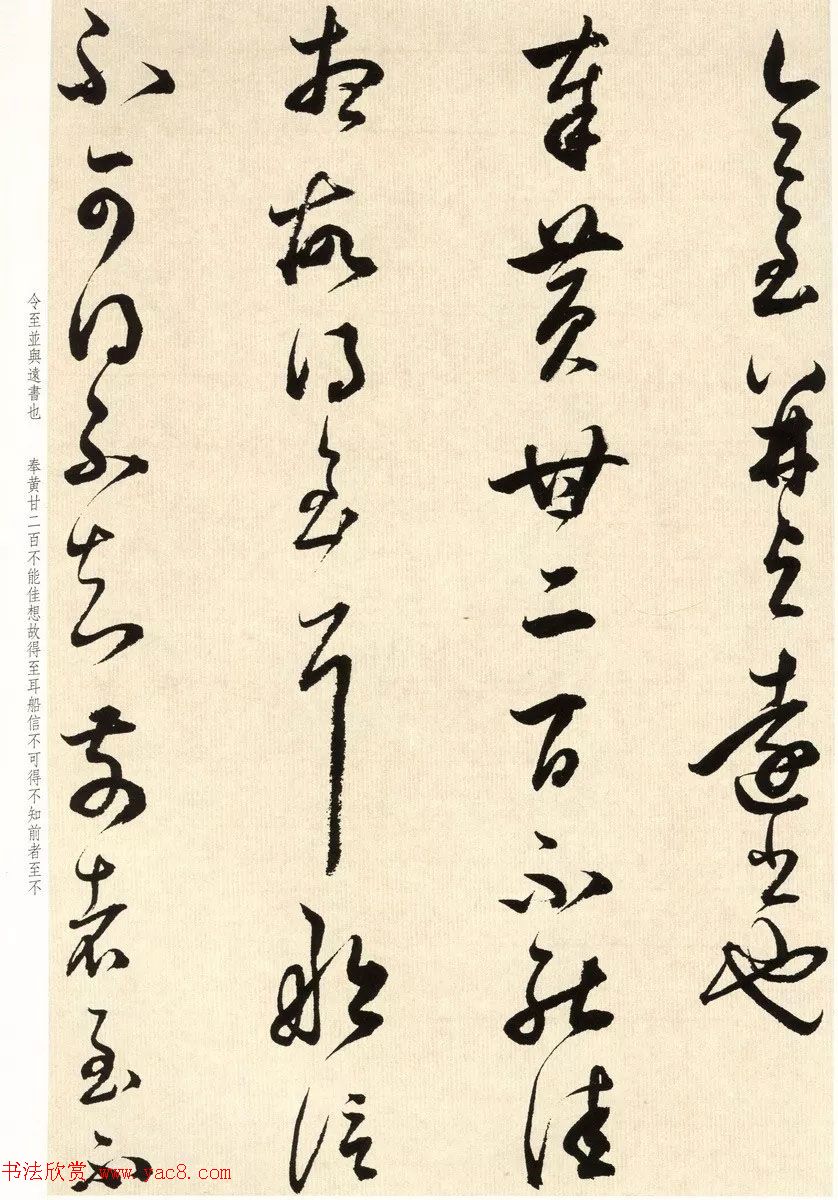 令至並與遠書也
奉黃甘二百不能佳
想故得至耳船信
不可得不知前者至不
令至並與遠書也 奉黄甘二百不能佳想故得至耳船信不可得不知前者至不
书法欣赏 www.yac8.com